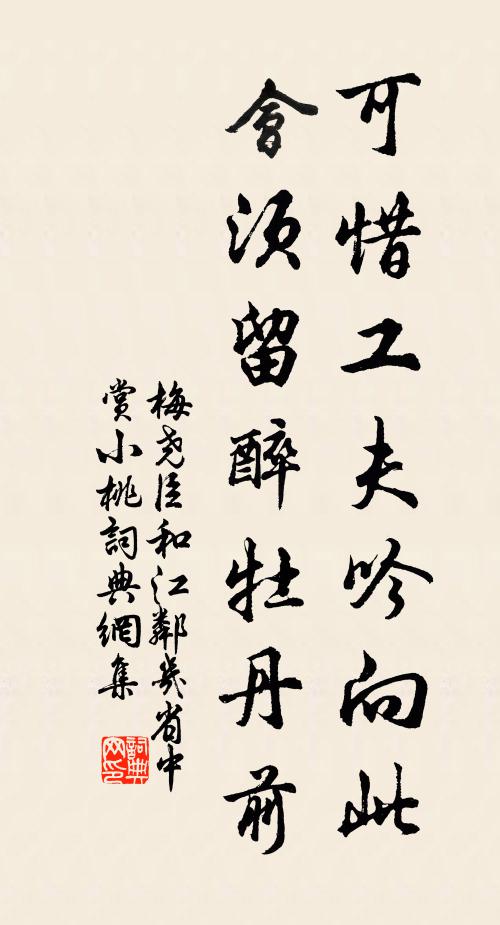 可惜工夫吟向此
會須留醉牡丹前
梅堯臣和江鄰幾省中
賞小桃詞典網集
詞典
网印